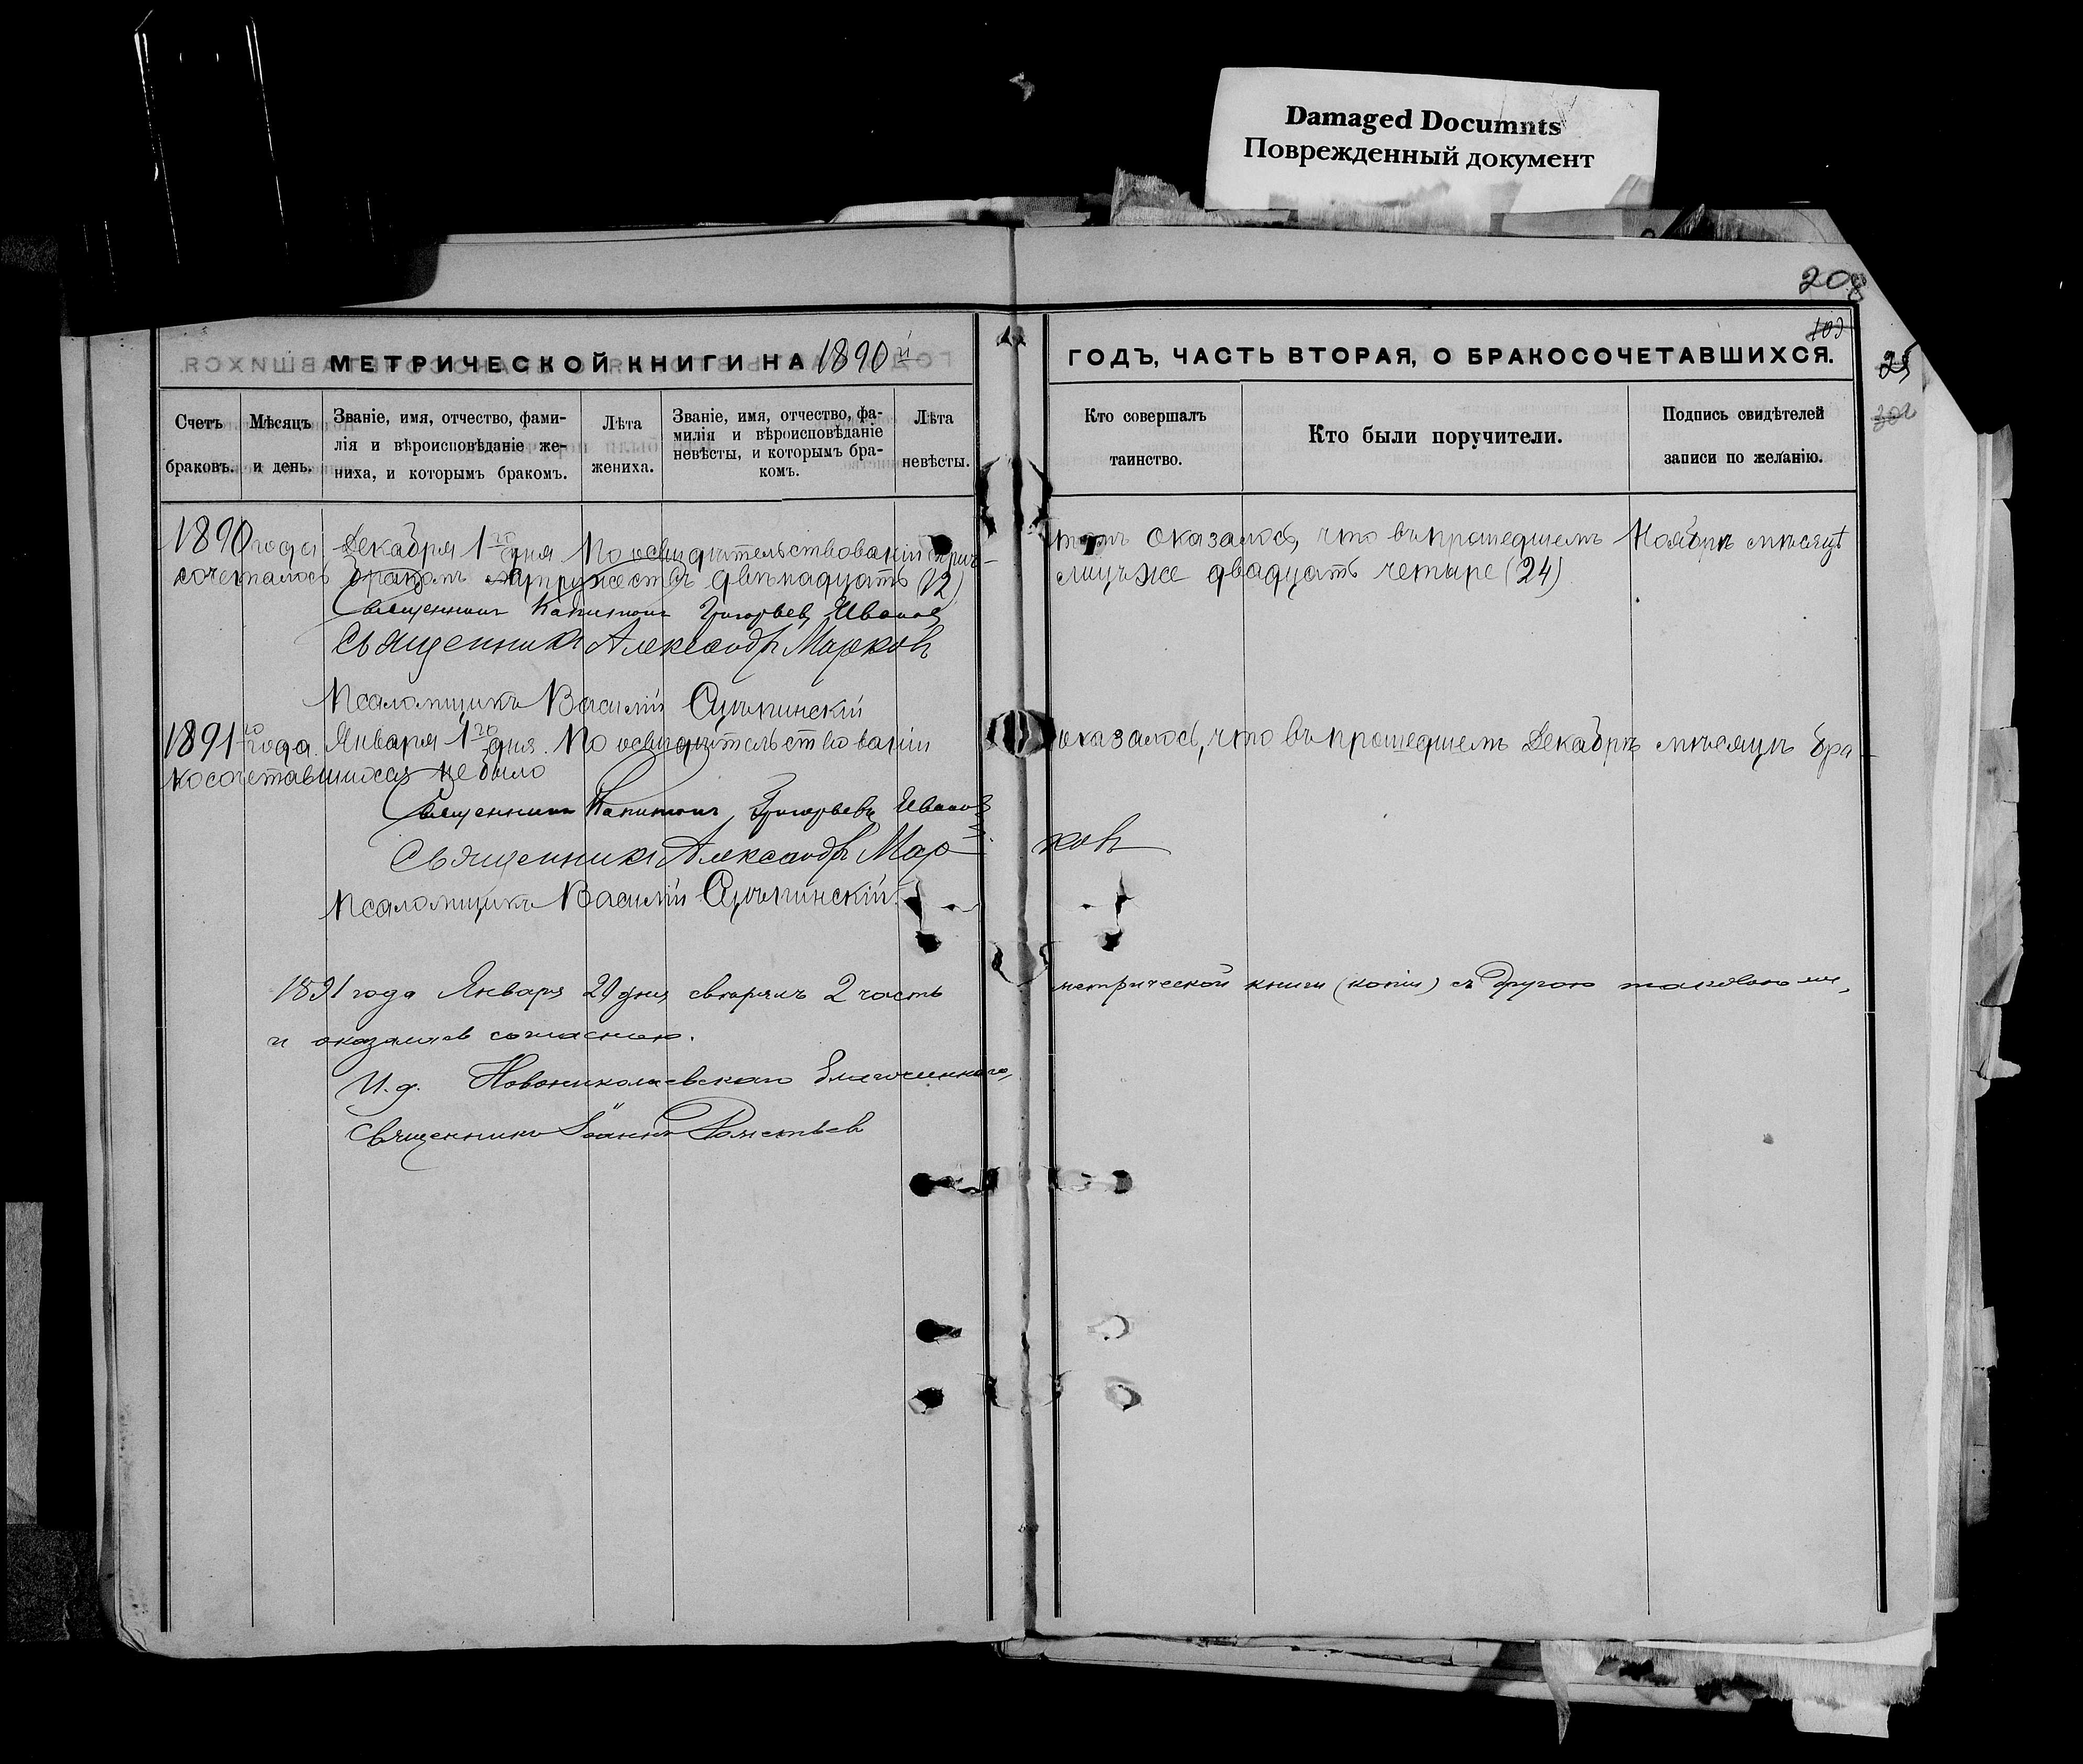 Damaged Documnts
Поврежденный документ
208
103
25
302
МЕТРИЧЕСКОЙ КНИГИ НА 1890й
ГОДЪ, ЧАСТЬ ВТОРАЯ, О БРАКОСОЧЕТАВШИХСЯ.
Счетъ браковъ.
Мѣсяцъ и день.
Званіе, имя, отчество, фами-
лія и вѣроисповѣданіе же-
ниха, и которымъ бракомъ.
Лѣта жениха.
Званіе, имя, отчество, фа-
милія и вѣроисповѣданіе
невѣсты, и которымъ бра-
комъ.
Лѣта невѣсты.
Кто совершалъ таинство.
Кто были поручители.
Подпись свидѣтелей
записи по желанію.
1890 года Декабря 1го дня По освидѣтельствованіи оказалось, что въ прошедшемъ Ноябрѣ мѣсяцѣ
сочеталось бракомъ супружествъ двѣнадцать (12) лицъ же двадцать четыре (24)
Священникъ Капитонъ Григорьевъ Ивановъ
Священникъ Александръ Марковъ
Псаломщикъ Василій
1891го года Января 1го дня. По освидѣтельствованіи оказалось, что въ прошедшемъ Декабрѣ мѣсяцѣ бра-
косочетавшихся не было
Священникъ Капитонъ Григорьевъ Ивановъ
Священникъ Александръ Мар-ковъ
Псаломщикъ Василій
1891 года Января 20 дня свѣрялъ 2 часть метрической книги (копіи) съ другою таковою же,
и оказалась согласною.
И. д. Новониколаевскаго благочиннаго,
Священникъ Іоаннъ